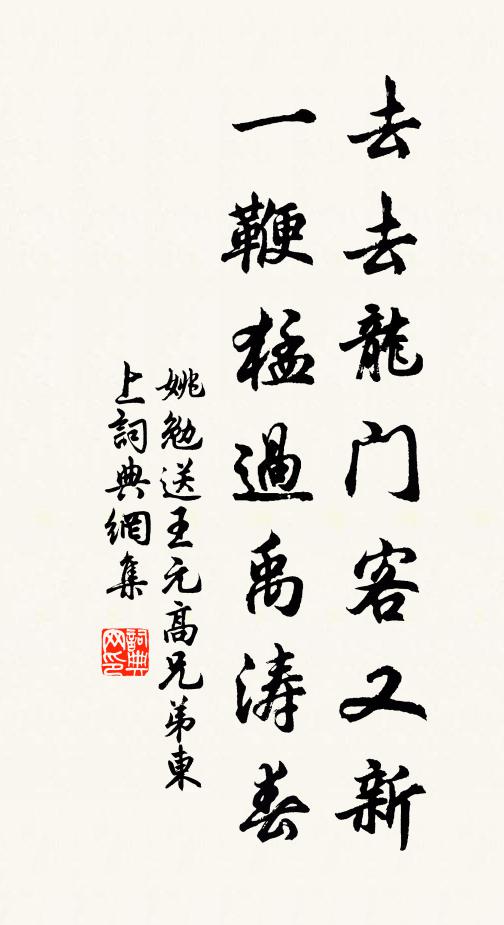 去去龍门客又新
一鞭猛過禹濤春
姚勉送王元高兄弟東
上詞典網集
詞典网印